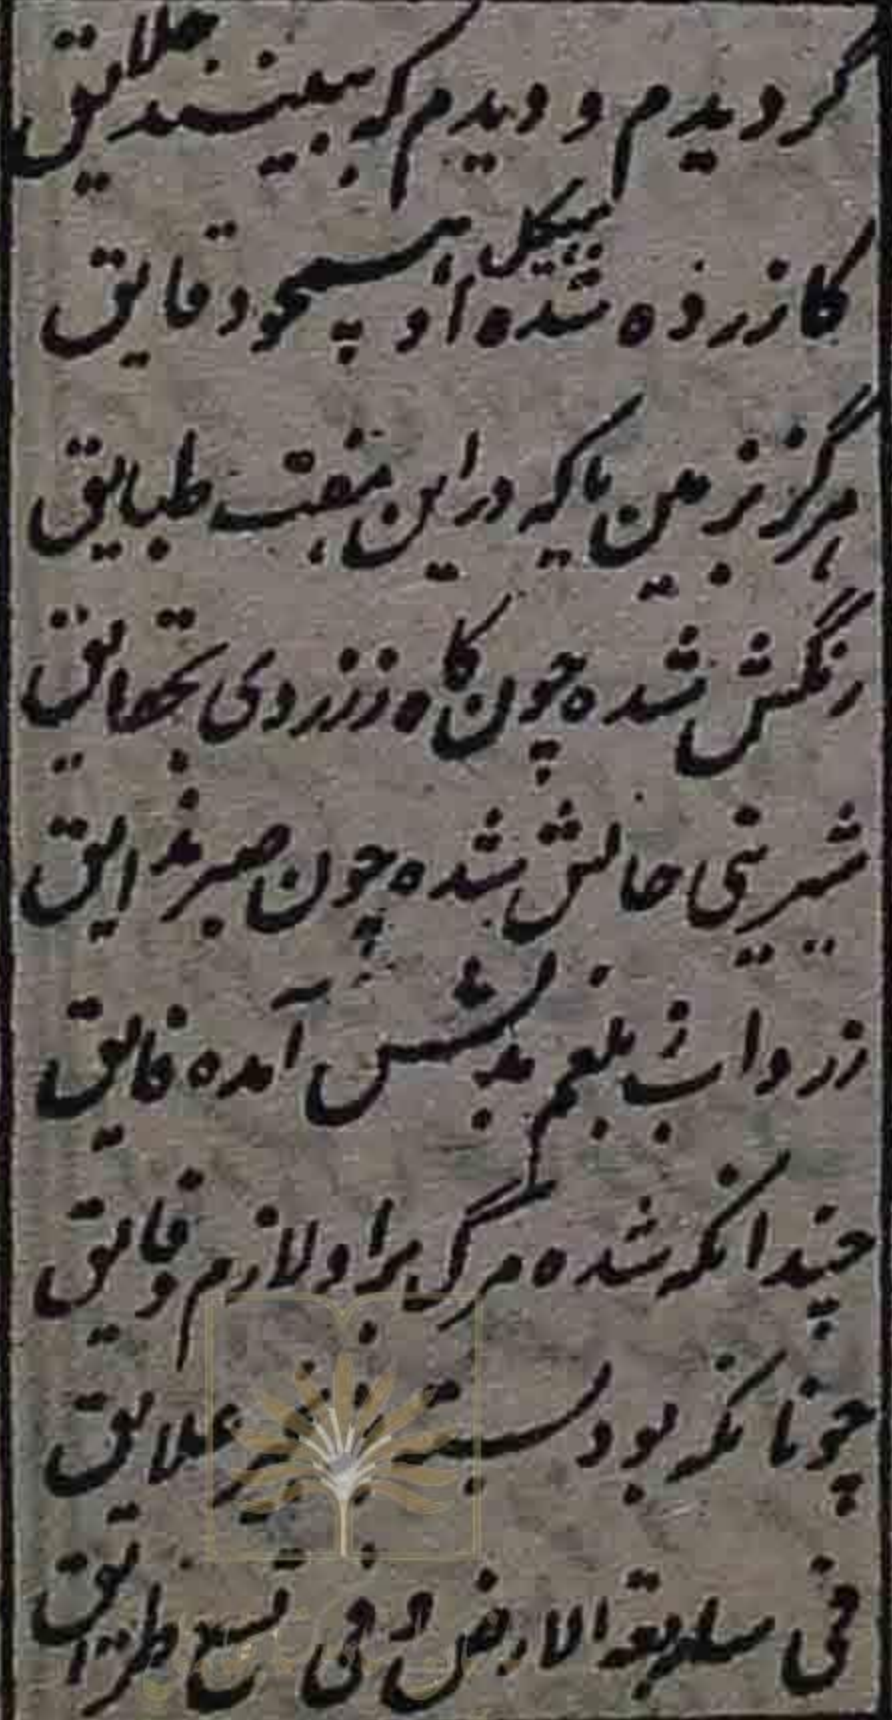 گردیدم و دیدم که ببینند خلایق
کازرده شده هیکل او همچو دقایق
هرگز بزمین با که در این هفت طبایق
رنگش شده چون کاه ززردی بحقایق
شیرینی حالش شده چون صبر بذایق
زرداب بلغم بدلش آمده فایق
چندانکه شده مرگ براو لازم وفایق
چونانکه بود بسته علایق
فی سابعة الارض و فی تسع طرایق